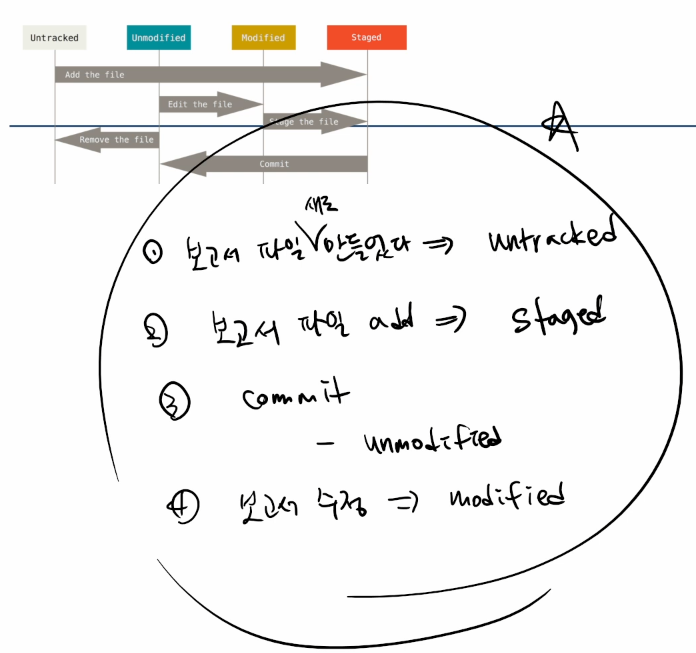 Untracked Unmodified Modified Staged
Add the file
Edit the file
Stage the file
Remove the file
Commit
새로
① 보고서 파일 ∨ 만들었다 ⇒ untracked
② 보고서 파일 add ⇒ staged
③ commit
- unmodified
④ 보고서 수정 ⇒ modified